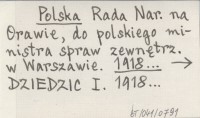 Polska Rada Nar. na
Orawie, do polskiego mi-
nistra spraw zewnętrz.
w Warszawie. 1918... →
DZIEDZIC I. 1918...